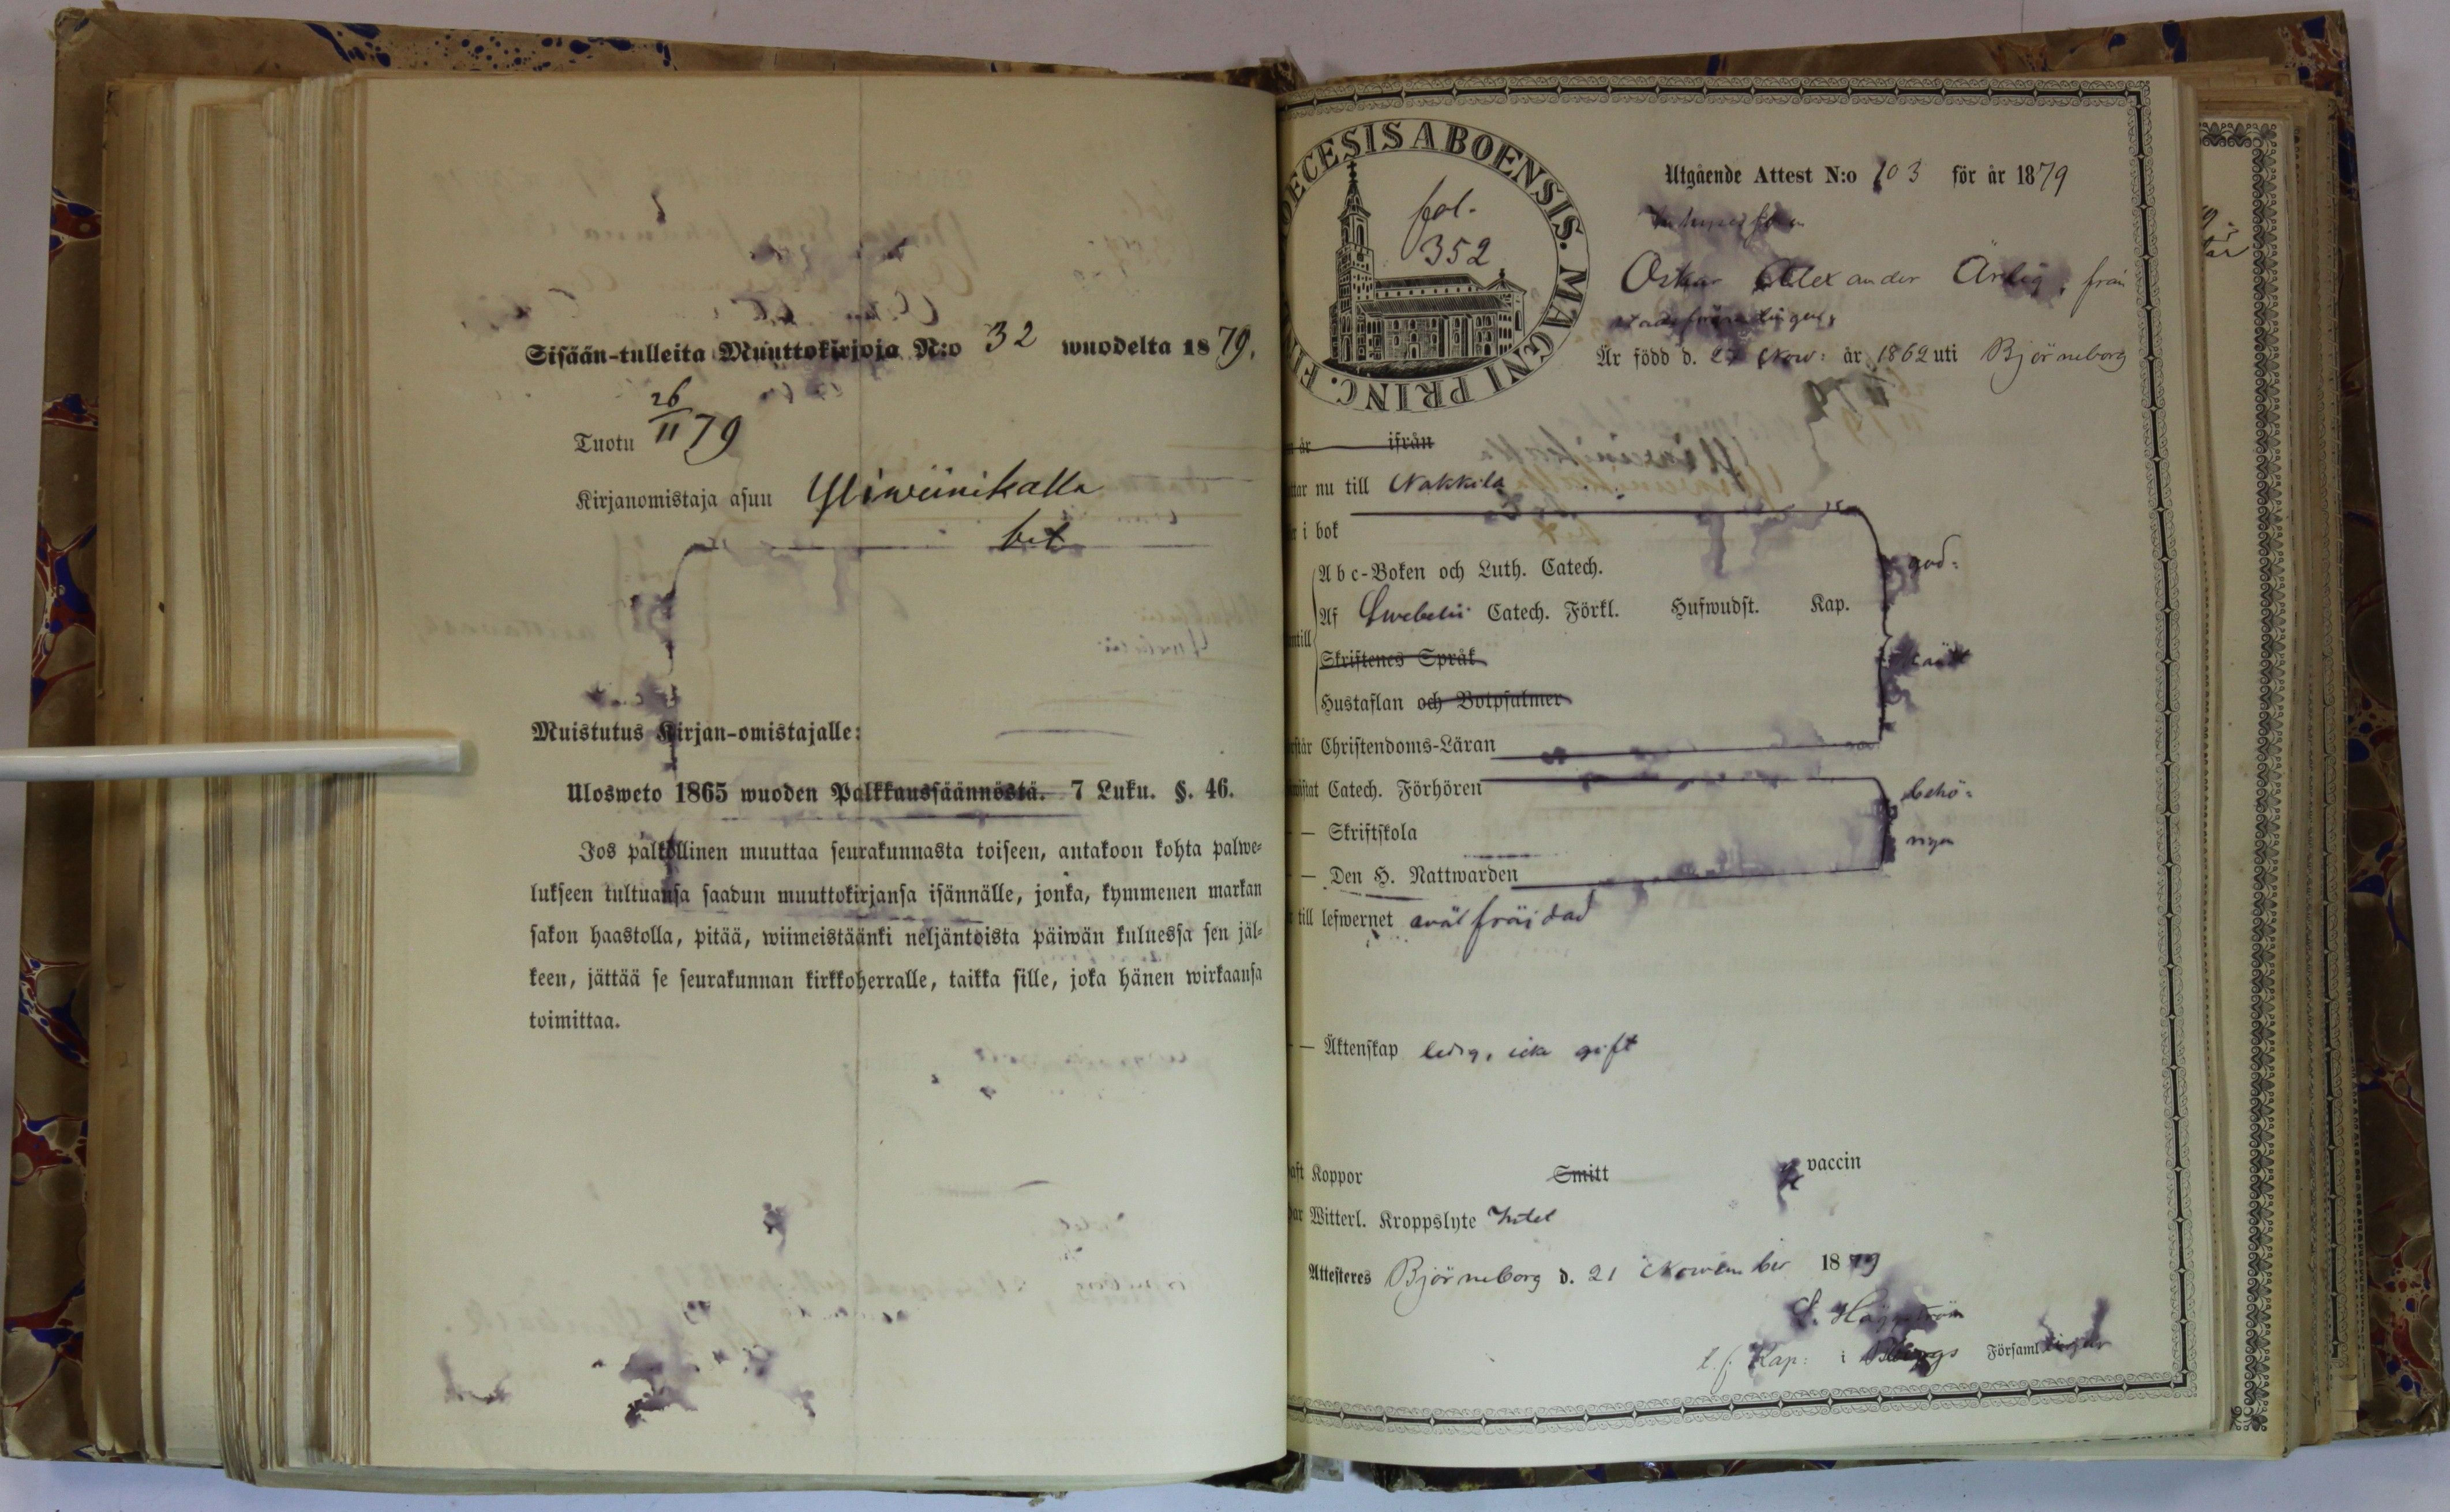 Sisään-tulleita Muuttokirjoja N:o 32 wuodelta 1879.
Tuotu 26/11 79
Kirjanomistaja asuu Yliwiinikalla
bet
Muistutus Kirjan-omistajalle:
Ulosweto 1865 wuoden Palkkaussäännöstä. 7 Luku. §. 46.
Jos palkollinen muuttaa seurakunnasta toiseen, antakoon kohta palwe-
lukseen tultuansa saadun muuttokirjansa isännälle, jonka, kymmenen markan
sakon haastolla, pitää, wiimeistäänki neljäntoista päiwän kuluessa sen jäl-
keen, jättää se seurakunnan kirkkoherralle, taikka sille, joka hänen wirkaansa
toimittaa.
ECESIS ABOENSIS. MAGNI PRINC. FI
fol.
352
Utgående Attest N:o 103 för år 1879
Oskar Alexander Ärlig, från
Är född d. 27 Nov: år 1862 uti Björneborg
år ifrån
nu till Nakkila
i bok
Abc-Boken och Luth. Catech.
god-
Af Swebelii Catech. Förkl. Hufwudst. Kap.
Skriftenes Språk
Hustaflan och Botpsalmer
Christendoms-Läran
Catech. Förhören
behö-
— Skriftskola
rigen
— Den H. Nattwarden
till lefwernet wälfräjdad
— Äktenskap ledig, icke gift
Koppor Smitt vaccin
Witterl. Kroppslyte Intet
Attesteres Björneborg d. 21 November 1879
L. Häggström
t. f. Kap: i Bborgs Församlingar